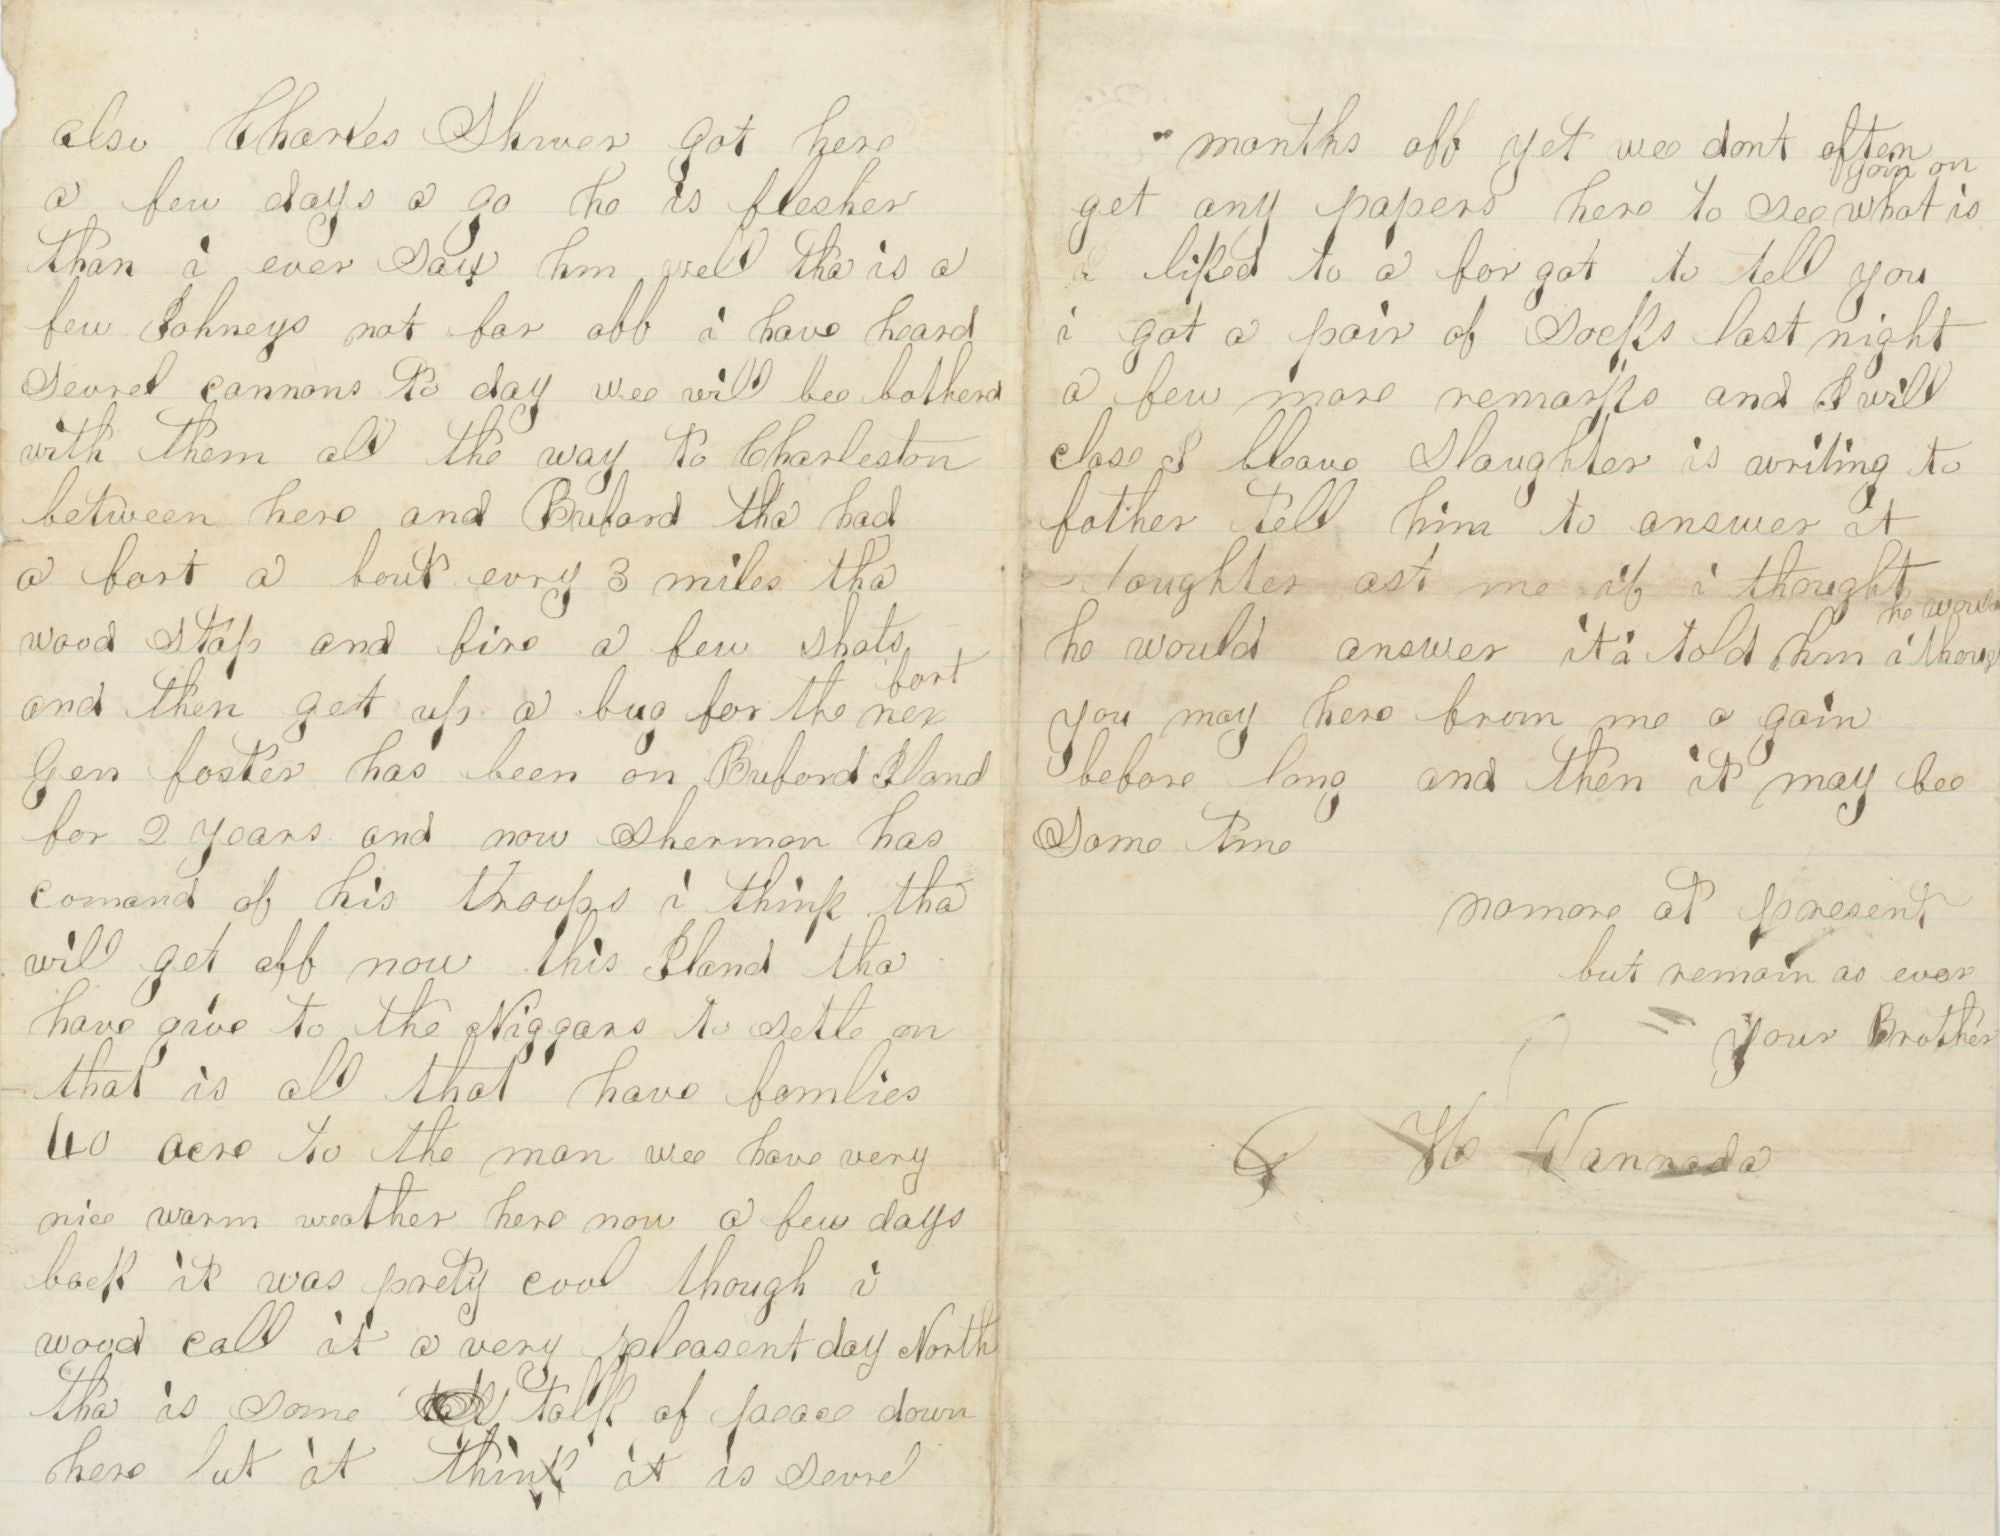 also Charles Shiver got here
a few days a go he is flesher
than i ever saw hm well tha is a
few Johneys not far off i have heard
sevrel cannons to day wee will bee botherd
with them all the way to Charleston
between here and Buford tha had
a fort a bout evry 3 miles tha
wood stop and fire a few shots
and then get up a bug for the nex fort
Gen foster has been on Buford Iland
for 2 years and now Sherman has
comand of his troops i think tha
will get off now this Iland tha
have give to the Niggars to setle on
that is all that have famlies
40 acre to the man wee have very
nice warm weather here now a few days
back it was prety cool though i
wood call it a very pleasent day North
tha is some talk of peace down
here but it think it is sevrel
months off yet wee dont often
get any papers here to see what is goin on
i liked to a for got to tell you
i got a pair of socks last night
a few more remarks and I will
close I bleave Slaughter is writing to
father tell him to answer it
Slaughter ast me if i thought
he would answer it i told hm i though he would
you may here from me a gain
before long and then it may bee
some time
nomore at present
but remain as ever
your Brother
G W Vannada